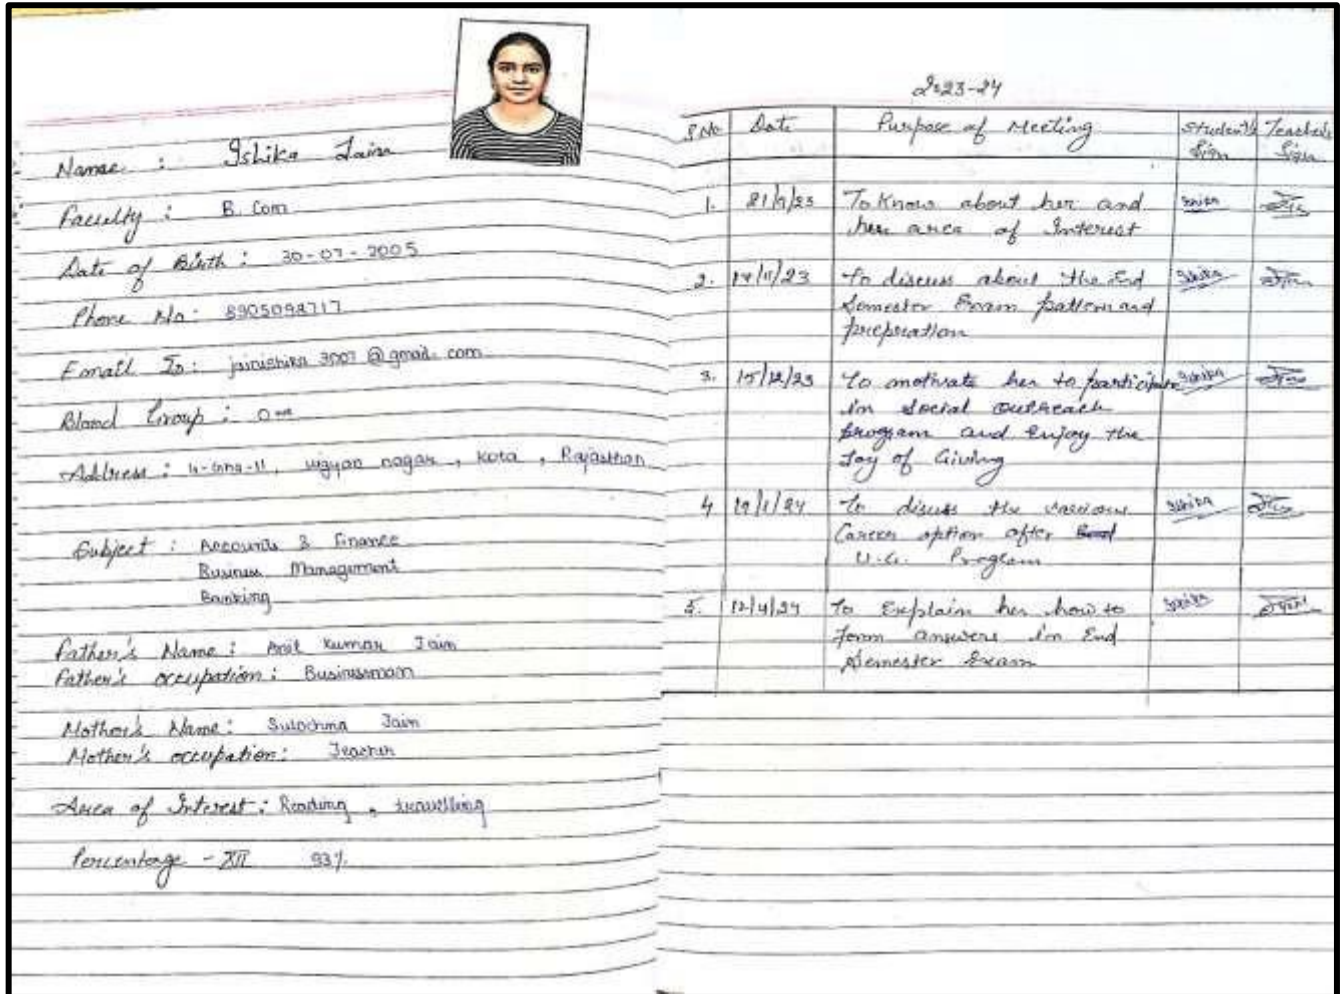 Name : Ishika Jain
Faculty : B. Com
Date of Birth : 30-07-2005
Phone No: 8905098717
Email Id: jainishika 3007 @gmail.com
Blood Group :
Address : vigyan nagar , Kota , Rajasthan
Subject : Accounts & Finance
Business Management
Banking
Father's Name : Anil Kumar Jain
Father's occupation : Businessman
Mother's Name : Sulochna Jain
Mother's occupation : Teacher
Area of Interest : Reading , travelling
Percentage - XII 93%
2023-24
S.No Date Purpose of Meeting Student's Teacher's
Sign Sign
1. 21/9/23 To Know about her and Ishika
her area of Interest
2. /11/23 To discuss about the End Ishika
Semester Exam pattern and
prepration
3. 15/12/23 To motivate her to participate Ishika
in Social outreach
program and Enjoy the
Joy of Giving
4 19/1/24 To discuss the various Ishika
Career option after
U.G. Program
5. 12/4/24 To Explain her how to Ishika
form answers in End
Semester Exam